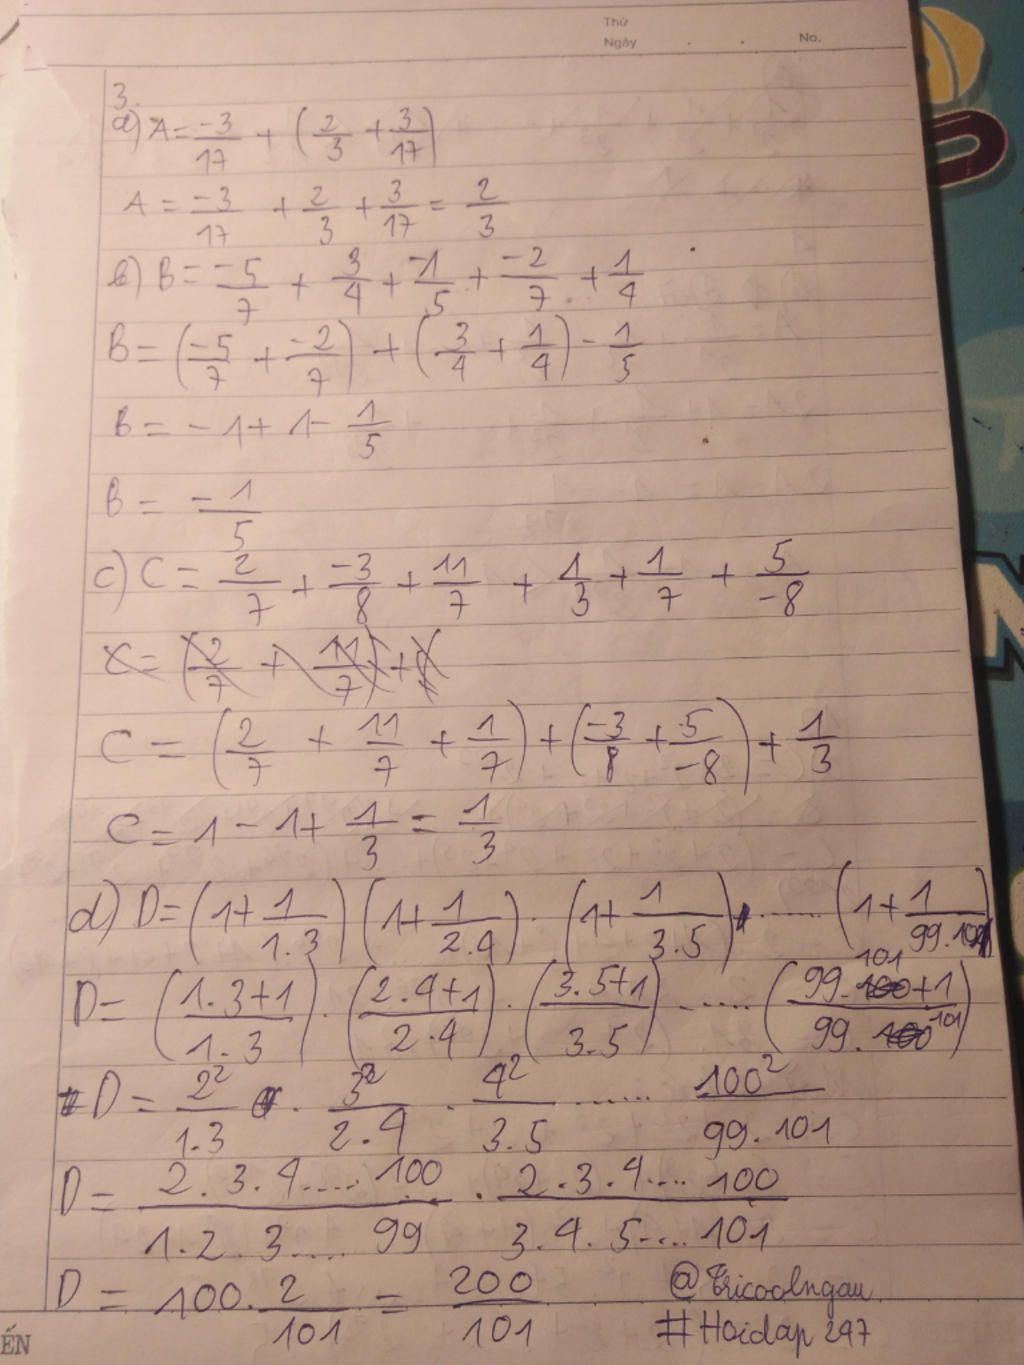 Thứ
Ngày . . No.
3.
a) A = -3/17 + (2/3 + 3/17)
A = -3/17 + 2/3 + 3/17 = 2/3
b) B = -5/7 + 3/4 + -1/5 + -2/7 + 1/4
B = (-5/7 + -2/7) + (3/4 + 1/4) - 1/5
B = -1 + 1 - 1/5
B = -1/5
c) C = 2/7 + -3/8 + 11/7 + 1/3 + 1/7 + 5/-8
C = (2/7 + 11/7) +
C = (2/7 + 11/7 + 1/7) + (-3/8 + 5/-8) + 1/3
C = 1 - 1 + 1/3 = 1/3
d) D = (1 + 1/1.3) (1 + 1/2.4) . (1 + 1/3.5) . ...... (1 + 1/99.101)
D = (1.3+1/1.3) . (2.4+1/2.4) . (3.5+1/3.5) ...... (99.101+1/99.101)
D = 2²/1.3 . 3²/2.4 . 4²/3.5 ...... 100²/99.101
D = 2.3.4.....100/1.2.3.....99 . 2.3.4....100/3.4.5....101
D = 100 . 2/101 = 200/101
@Tricoolngau
#Hoidap247
ẾN